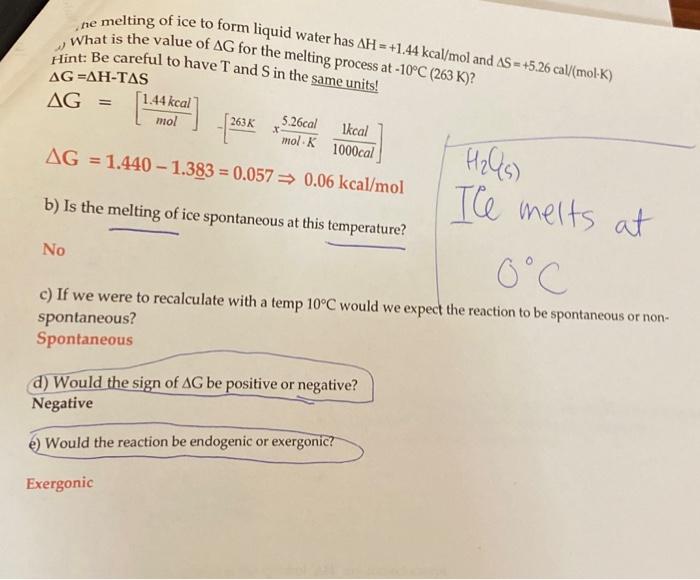 he melting of ice to form liquid water has ΔH = +1.44 kcal/mol and ΔS = +5.26 cal/(mol·K)
What is the value of ΔG for the melting process at -10°C (263 K)?
Hint: Be careful to have T and S in the same units!
ΔG =ΔH-TΔS
ΔG = [1.44 kcal / mol] - [263 K x 5.26cal / mol · K 1kcal / 1000cal]
ΔG = 1.440 – 1.383 = 0.057 ⇒ 0.06 kcal/mol
H₂O(s)
Ice melts at
0°C
b) Is the melting of ice spontaneous at this temperature?
No
c) If we were to recalculate with a temp 10°C would we expect the reaction to be spontaneous or non-
spontaneous?
Spontaneous
d) Would the sign of ΔG be positive or negative?
Negative
e) Would the reaction be endogenic or exergonic?
Exergonic